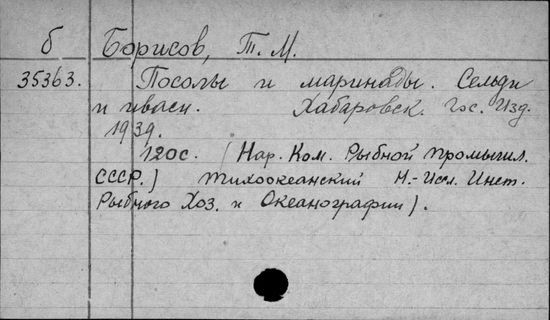 б Борисов, Т. М.
35363. Посолы и маринады. Сельди
и иваси. Хабаровск. Гос. Изд.
1939.
120с. (Нар. Ком. Рыбной промышл.
СССР.) Тихоокеанский Н.-Иссл. Инст.
Рыбного Хоз. и Океанографии).